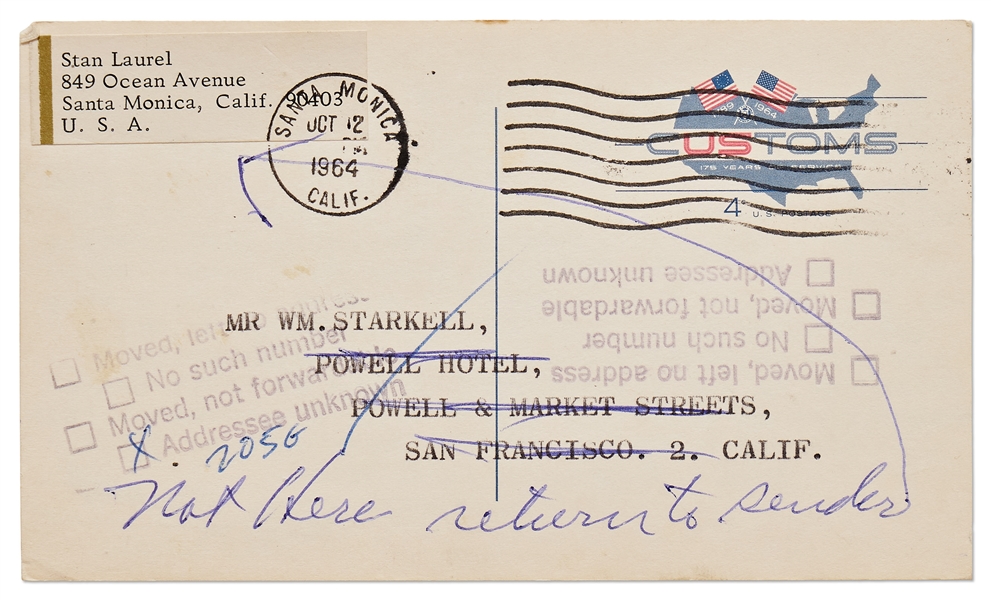 Stan Laurel
849 Ocean Avenue
Santa Monica, Calif. 90403
U. S. A.
SANTA MONICA
OCT 12
PM
1964
CALIF.
1789 1964
CUSTOMS
175 YEARS SERVICE
4 U.S. POSTAGE
Addressee unknown
Moved, not forwardable
No such number
Moved, left no address
MR WM. STARKELL,
POWELL HOTEL,
POWELL & MARKET STREETS,
SAN FRANCISCO. 2. CALIF.
Moved, left no address
No such number
Moved, not forwardable
Addressee unknown
X . 2056
Not Here return to sender